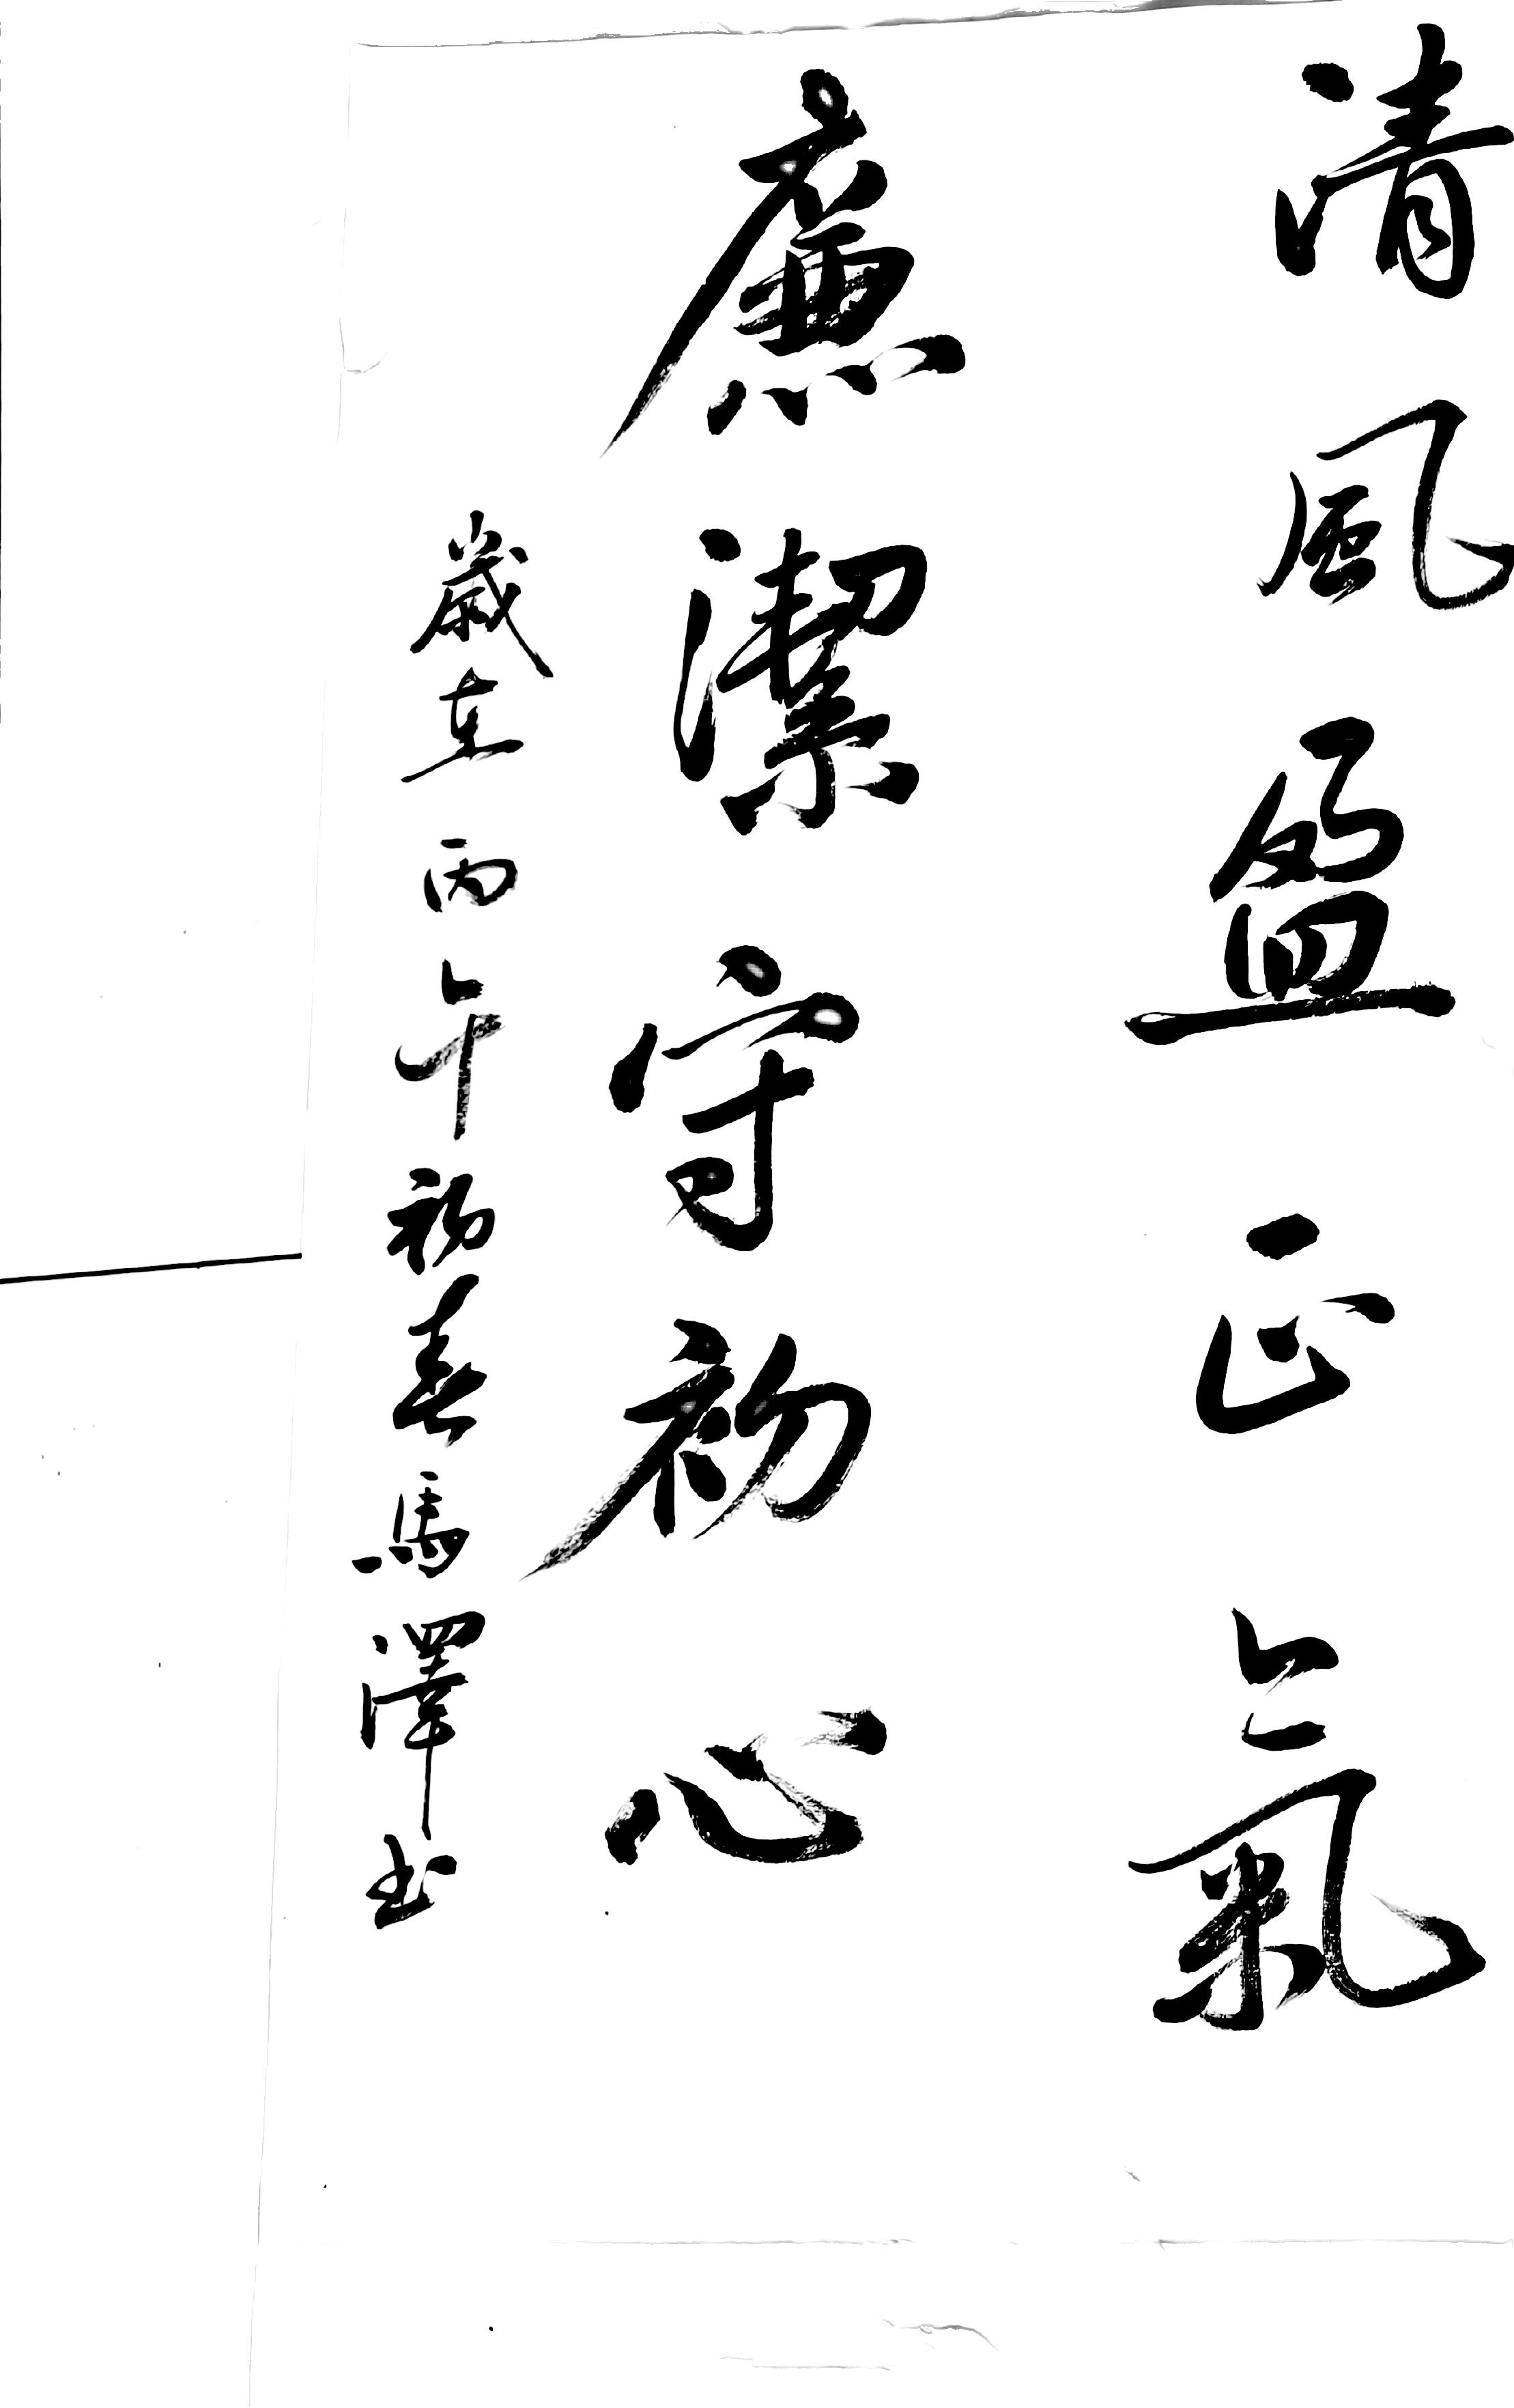 清風盈正氣
廉潔守初心
歲在丙午初春馬澤书